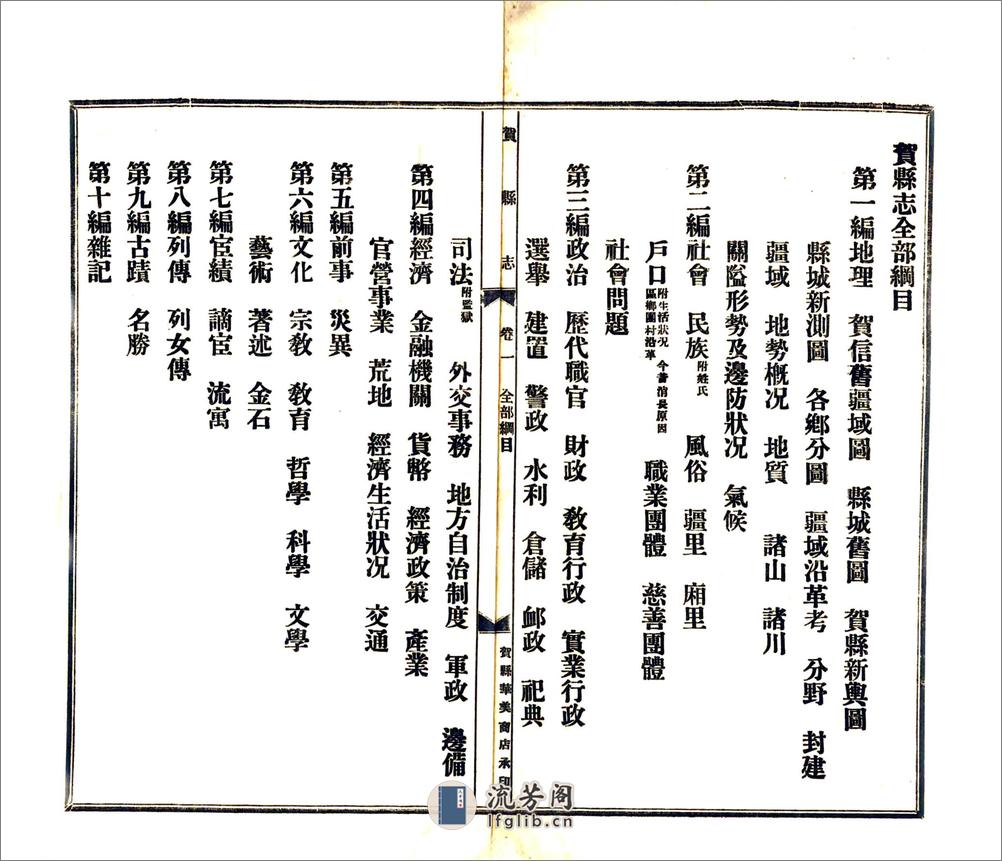 賀縣志全部綱目
第一編地理　賀信舊疆域圖　縣城舊圖　賀縣新輿圖
縣城新測圖　各鄉分圖　疆域沿革考　分野　封建
疆域　地勢概况　地質　諸山　諸川
關隘形勢及邊防狀况　氣候
第二編社會　民族附姓氏　風俗　疆里　廂里
戶口附生活狀况　今昔消長原因區鄉團村沿革　職業團體　慈善團體
社會問題
第三編政治　歷代職官　財政　敎育行政　實業行政
選舉　建置　警政　水利　倉儲　郵政　祀典
賀縣志　卷一　全部綱目　賀縣華美商店承印
司法附監獄　外交事務　地方自治制度　軍政　邊備
第四編經濟　金融機關　貨幣　經濟政策　產業
官營事業　荒地　經濟生活狀况　交通
第五編前事　災異
第六編文化　宗敎　敎育　哲學　科學　文學
藝術　著述　金石
第七編宦績　謫宦　流寓
第八編列傳　列女傳
第九編古蹟　名勝
第十編雜記
流芳阁
lfglib.cn